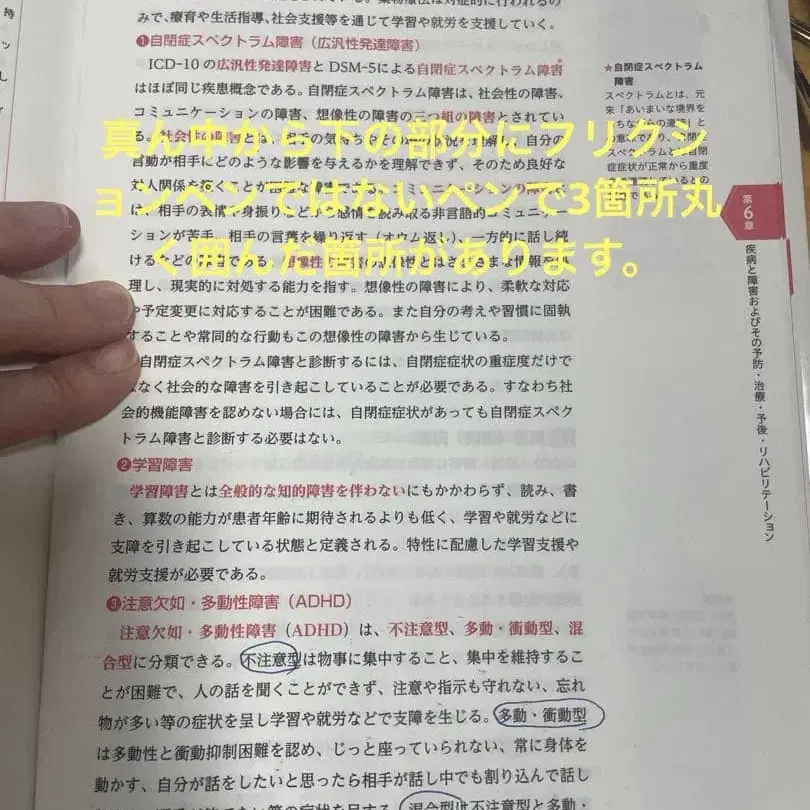 みで、療育や生活指導、社会支援等を通じて学習や就労を支援していく。
❶自閉症スペクトラム障害（広汎性発達障害）
ICD-10の広汎性発達障害とDSM-5による自閉症スペクトラム障害
はほぼ同じ疾患概念である。自閉症スペクトラム障害は、社会性の障害、
コミュニケーションの障害、想像性の障害の三つ組の障害とされてい
真ん中から下の部分にフリクシ
ョンペンではないペンで3箇所丸
く囲んだ箇所があります。
言動が相手にどのような影響を与えるかを理解できず、そのため良好な
ションが苦手、相手の言葉を繰り返す（オウム返し）、一方的に話し続
理し、現実的に対処する能力を指す。想像性の障害により、柔軟な対応
や予定変更に対応することが困難である。また自分の考えや習慣に固執
することや常同的な行動もこの想像性の障害から生じている。
自閉症スペクトラム障害と診断するには、自閉症症状の重症度だけで
なく社会的な障害を引き起こしていることが必要である。すなわち社
会的機能障害を認めない場合には、自閉症症状があっても自閉症スペク
トラム障害と診断する必要はない。
❷学習障害
学習障害とは全般的な知的障害を伴わないにもかかわらず、読み、書
き、算数の能力が患者年齢に期待されるよりも低く、学習や就労などに
支障を引き起こしている状態と定義される。特性に配慮した学習支援や
就労支援が必要である。
❸注意欠如・多動性障害（ADHD）
注意欠如・多動性障害（ADHD）は、不注意型、多動・衝動型、混
合型に分類できる。不注意型は物事に集中すること、集中を維持するこ
とが困難で、人の話を聞くことができず、注意や指示も守れない、忘れ
物が多い等の症状を呈し学習や就労などで支障を生じる。多動・衝動型
は多動性と衝動抑制困難を認め、じっと座っていられない、常に身体を
動かす、自分が話をしたいと思ったら相手が話し中でも割り込んで話し
混合型は不注意型と多動・
★自閉症スペクトラム
障害
スペクトラムとは、元
来「あいまいな境界を
症症状が正常から重度
第6章
疾病と障害およびその予防・治療・予後・リハビリテーション